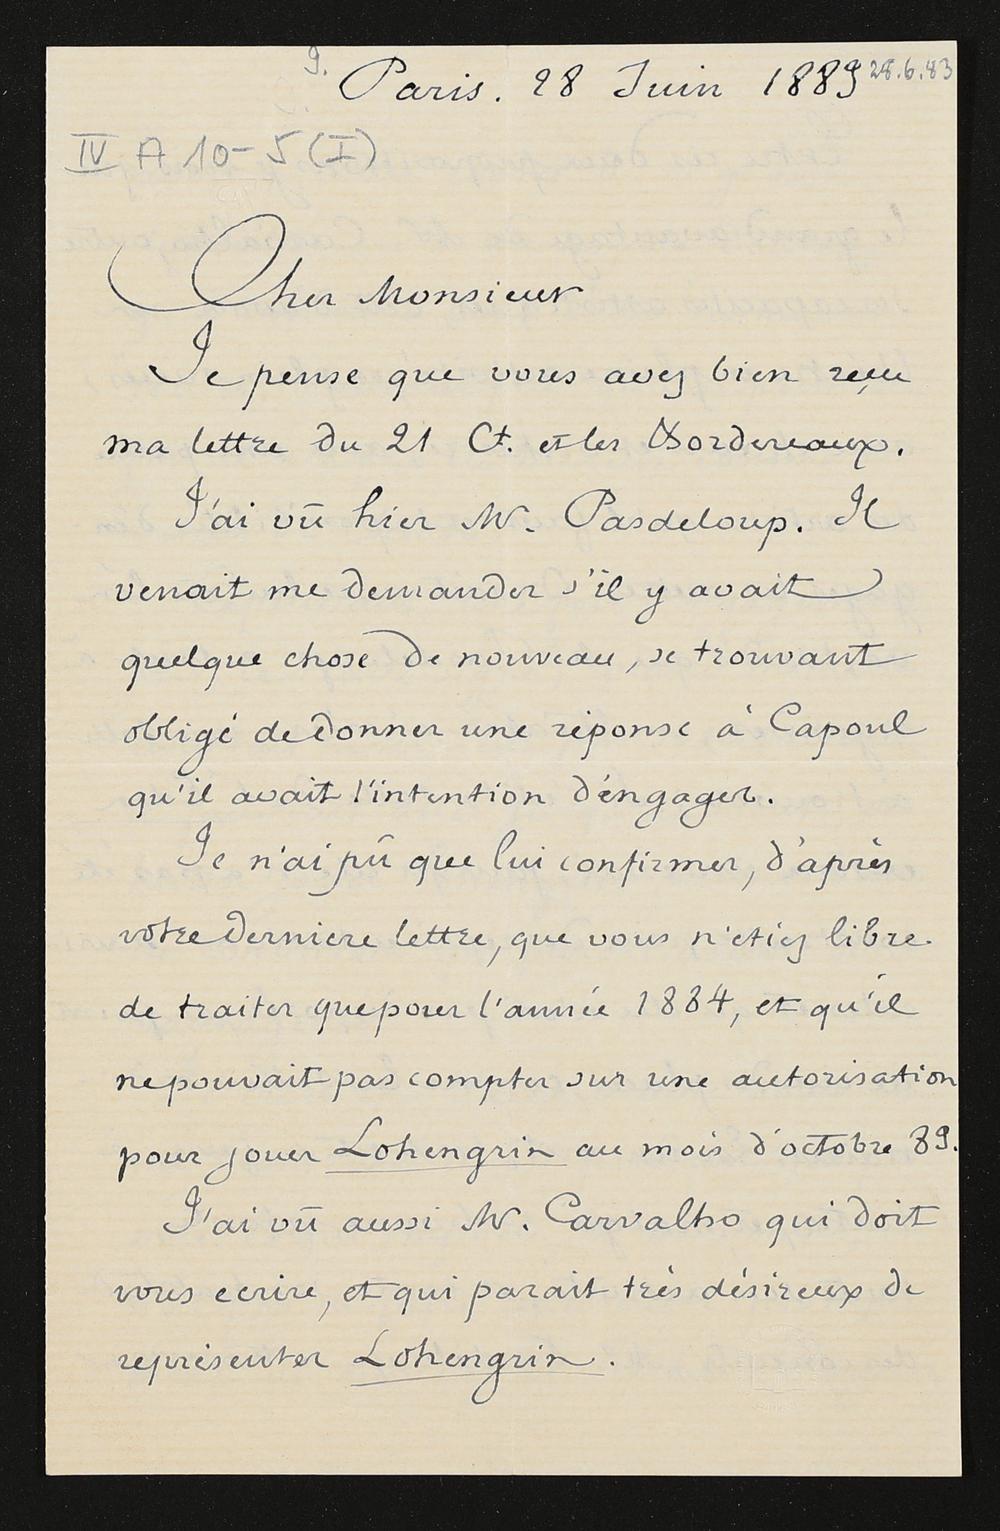 9.
Paris. 28 Juin 1883
28.6.83
IV A 10-5 (I)
Cher Monsieur
Je pense que vous avez bien reçu
ma lettre du 21 Ct. et les Bordereaux.
J'ai vû hier Mr. Pasdeloup. Il
venait me demander s'il y avait
quelque chose de nouveau, se trouvant
obligé de donner une réponse à Capoul
qu'il avait l'intention d'éngager.
Je n'ai pû que lui confirmer, d'après
votre derniere lettre, que vous n'etiez libre
de traiter que pour l'année 1884, et qu'il
ne pouvait pas compter sur une autorisation
pour jouer Lohengrin au mois d'octobre 83.
J'ai vû aussi Mr. Carvalho qui doit
vous ecrire, et qui parait très désireux de
représenter Lohengrin.